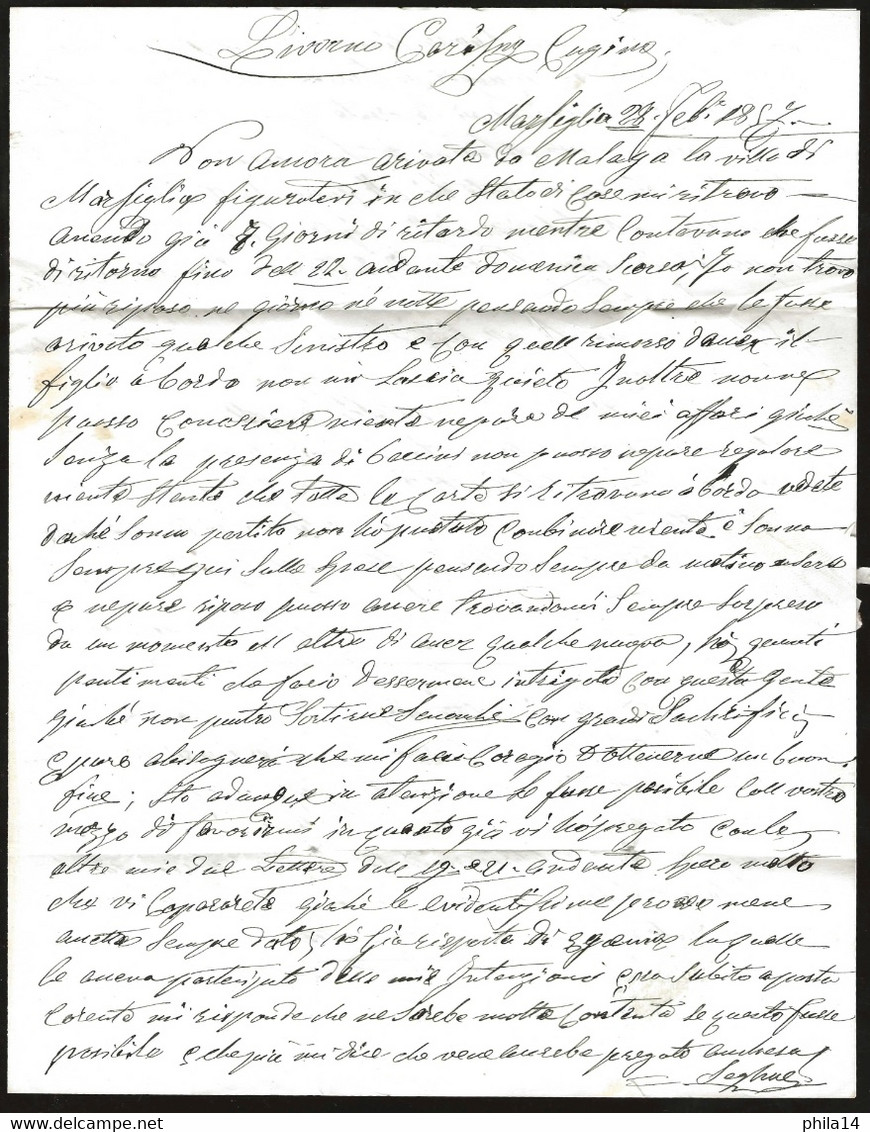 Livorno Cariss.ma Cugina,
Marsiglia 28. Feb. 1857
Non ancora arivata da Malaga la ville di
Marsiglia figuratevi in che stato di cose mi ritrovo
avendo gia 7. giorni di ritardo mentre contavano che fusse
di ritorno fino dell 22. andante domenica scorsa; Io non trovo
piu riposo ne giorno né notte pensando sempre che le fusse
arivato qualche sinistro e con quell rimorso d'aver il
figlio a bordo non mi lascia quieto Inoltre non ne
posso conoscere niente nepure de miei affari giache
senza la presenza di non posso nepure regolare
niente stante che tutte le carte si ritrovano a bordo vedete
dache sonno partito non ho pututo combinare niente e sonno
sempre qui sulle spese pensando sempre da matina a sera
e nepure riposo posso avere trovandomi sempre sorpreso
da un momento all altro di aver qualche nuova, ho quanti
pentimenti da facio d'essermene intrigato con questa gente
giache non putro sortirne senonche con grandi sachrifici
epure abisognera che mi facci coragio d'ottenerne un buon
fine; sto adunque in atenzione se fusse posibile coll vostro
mezzo di favorirmi in quanto gia vi ho pregato con le
altre mie due lettere dell 19. e 21. andante spero molto
che vi coparerete giache le evidentissime prove me ne
avette sempre dato; ho gia risposta di la quelle
le aveva partecipato delle mie Intenzioni essa subito a posta
corente mi risponde che ne sarebe molto contenta se questo fusse
posibile e che piu mi dice che vene avrebe pregato anch'essa
Seghue
phila14